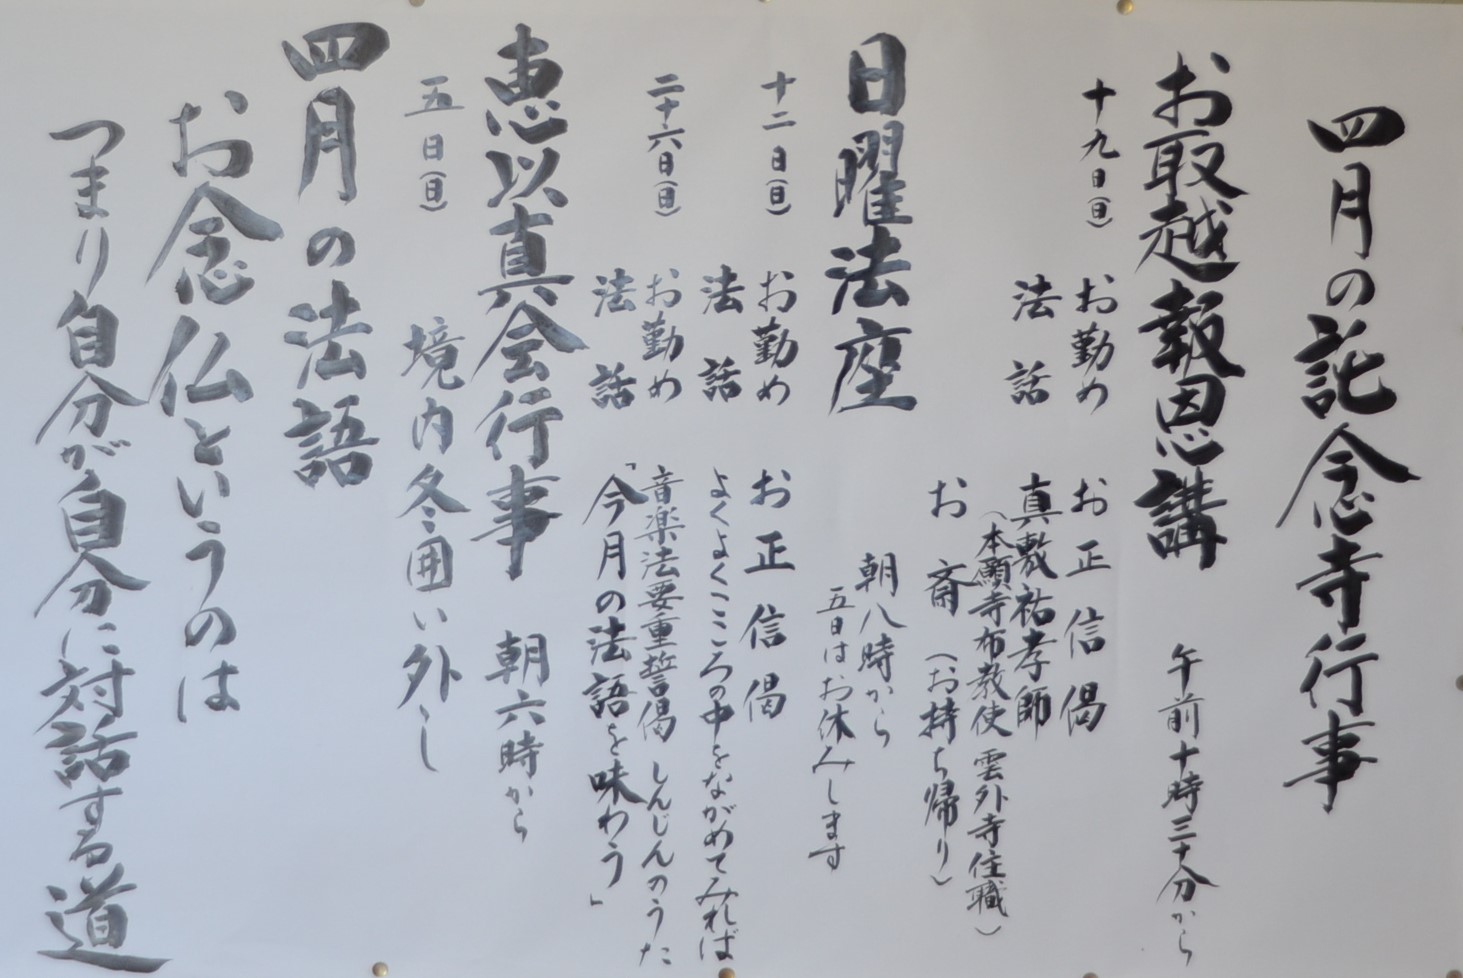 四月の託念寺行事
お取越報恩講　午前十時三十分から
十九日(日)　お勤め　お正信偈
法話　真敷祐孝師
(本願寺布教使　雲外寺住職)
お斎　(お持ち帰り)
日曜法座　朝八時から
五日はお休みします
十二日(日)　お勤め　お正信偈
法話　よくよくこころの中をながめてみれば
二十六日(日)　お勤め　音楽法要重誓偈　しんじんのうた
法話　「今月の法語を味わう」
恵以真会行事　朝六時から
五日(日)　境内冬囲い外し
四月の法語
お念仏というのは
つまり自分が自分に対話する道